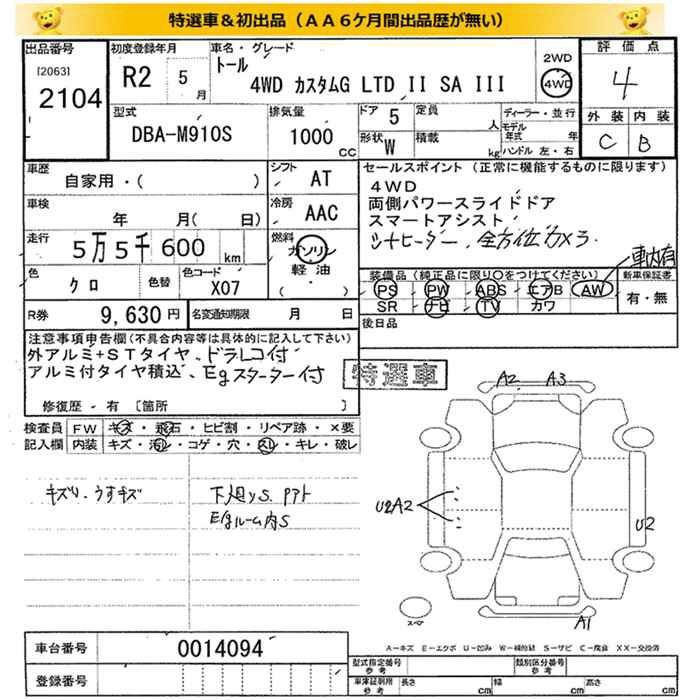 特選車＆初出品（ＡＡ６ケ月間出品歴が無い）
出品番号
[2063]
2104
初度登録年月
R2 5月
車名・グレード
トール
4WD カスタムG LTD II SA III
2WD
4WD
評価点
4
外装 内装
C B
型式
DBA-M910S
排気量
1000 CC
ドア 5
定員 人
形状 W
積載 kg
ディーラー・並行
モデル年式 年
ハンドル 左・右
車歴
自家用・( )
シフト
AT
車検
年 月( 日)
冷房
AAC
走行
5万5千600 km
燃料
ガソリン
軽油
( )
色
クロ
色替
色コード
X07
R券
9,630円
名変通知期限 月 日
セールスポイント（正常に機能するものに限ります）
4WD
両側パワースライドドア
スマートアシスト
シートヒーター、全方位カメラ
車内有
装備品（純正品に限り○をつけてください）
PS PW ABS エアB AW
SR ナビ TV カワ
新車保証書
有・無
後日品
注意事項申告欄(不具合内容等は具体的に記入して下さい)
外アルミ+STタイヤ、ドラレコ付
アルミ付タイヤ積込、Egスターター付
修復歴・有 〔箇所 〕
特選車
検査員記入欄
FW キズ・飛石・ヒビ割・リペア跡・×要
内装 キズ・汚レ・コゲ・穴・スレ・キレ・破レ
キズ少、うすキズ
Egルーム内S
A2 A3
U2A2
U2
A1
スペア
A−キズ E−エクボ U−凹み W−補修跡 S−サビ C−腐食 XX−交換済
車台番号
0014094
登録番号
型式指定番号
参考
類別区分番号
参考
車庫証明用
参考
長さ cm
幅 cm
高さ cm